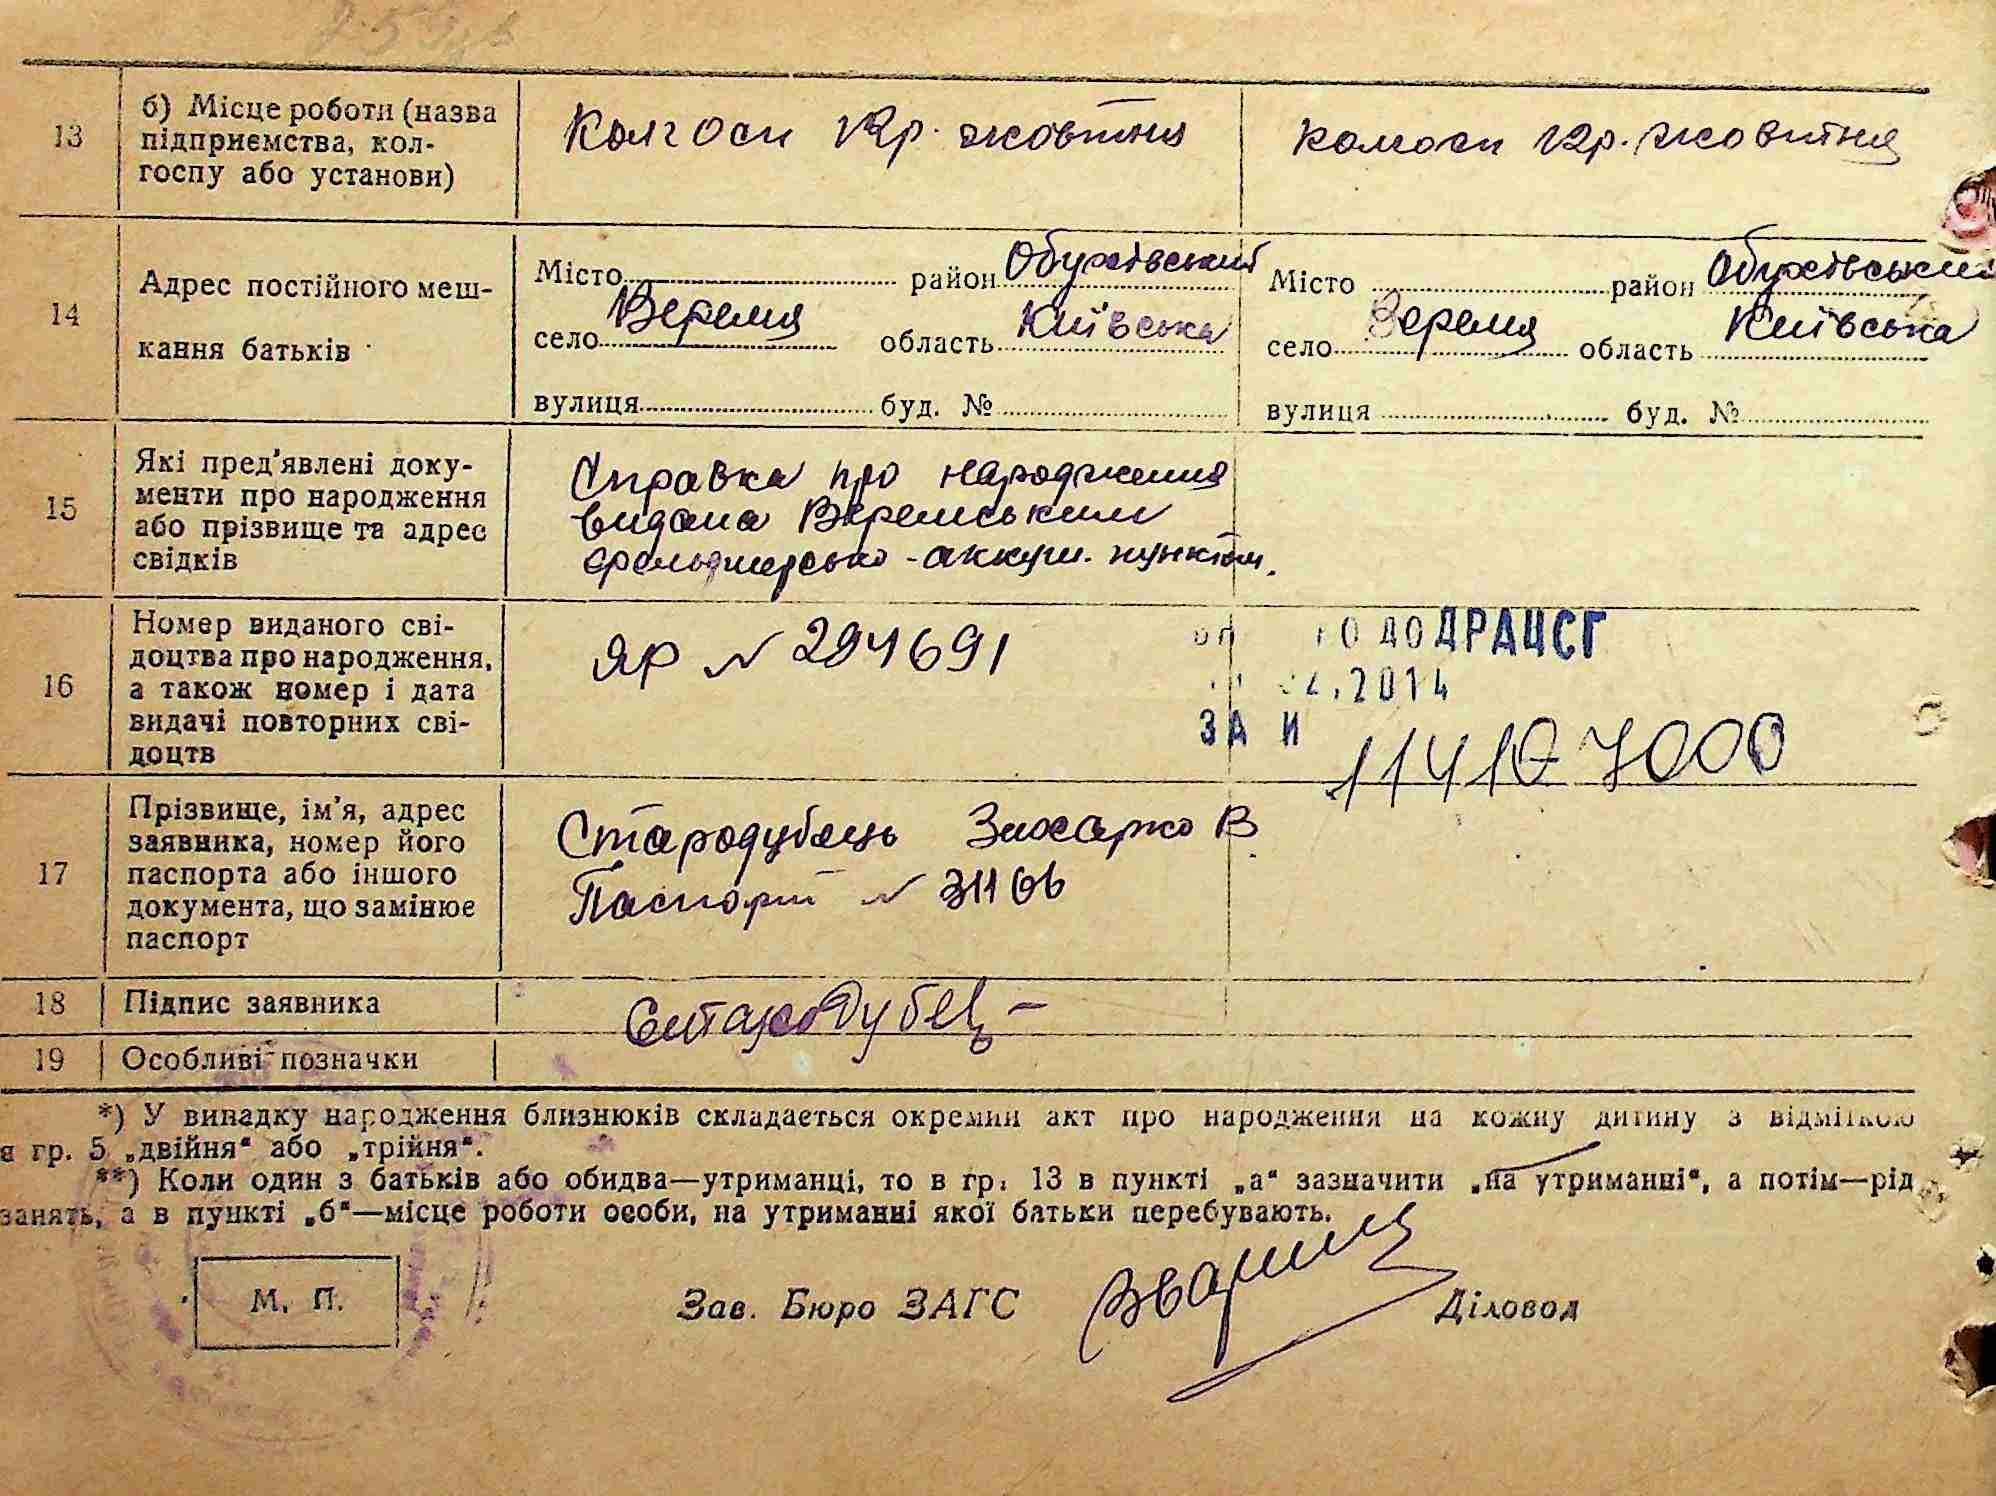 13
б) Місце роботи (назва
підприємства, кол-
госпу або установи)
Колгосп Чр. жовтня
колгосп Чр. жовтня
14
Адрес постійного меш-
кання батьків
Місто район Обухівський
село Веремя область Київська
вулиця буд. №
Місто район Обухівський
село Веремя область Київська
вулиця буд. №
15
Які пред'явлені доку-
менти про народження
або прізвище та адрес
свідків
Справка про народження
видана Веремським
фельдшерсько-аккуш. пунктом.
16
Номер виданого сві-
доцтва про народження,
а також номер і дата
видачі повторних сві-
доцтв
ЯР № 294691
ДРАЦСГ
.2014
ЗА И
11410 7000
17
Прізвище, ім'я, адрес
заявника, номер його
паспорта або іншого
документа, що замінює
паспорт
Стародубець Захарко В
Паспорт № 31166
18
Підпис заявника
Стародубец
19
Особливі позначки
*) У випадку народження близнюків складається окремий акт про народження на кожну дитину з відміткою
в гр. 5 „двійня“ або „трійня“.
**) Коли один з батьків або обидва—утриманці, то в гр. 13 в пункті „а“ зазначити „на утриманні“, а потім—рід
занять, а в пункті „б“—місце роботи особи, на утриманні якої батьки перебувають.
М. П.
Зав. Бюро ЗАГС
Діловод